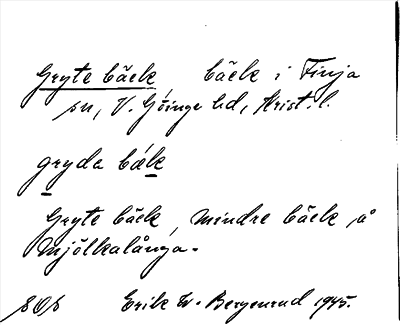 Gryte bäck bäck i Finja
sn, V. Göinge hd, Krist. l.
gryda bäk
Gryte bäck, mindre bäck å
Mjölkalånga.
Erik W. Bergenrud 1945.